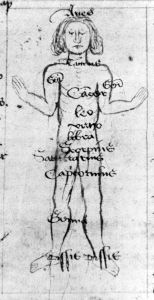 Aries
Taurus
Gem Gem
Cancer
leo
virgo
libra
Scorpius
Sagittarius
Capricornus
Pissis Pissis